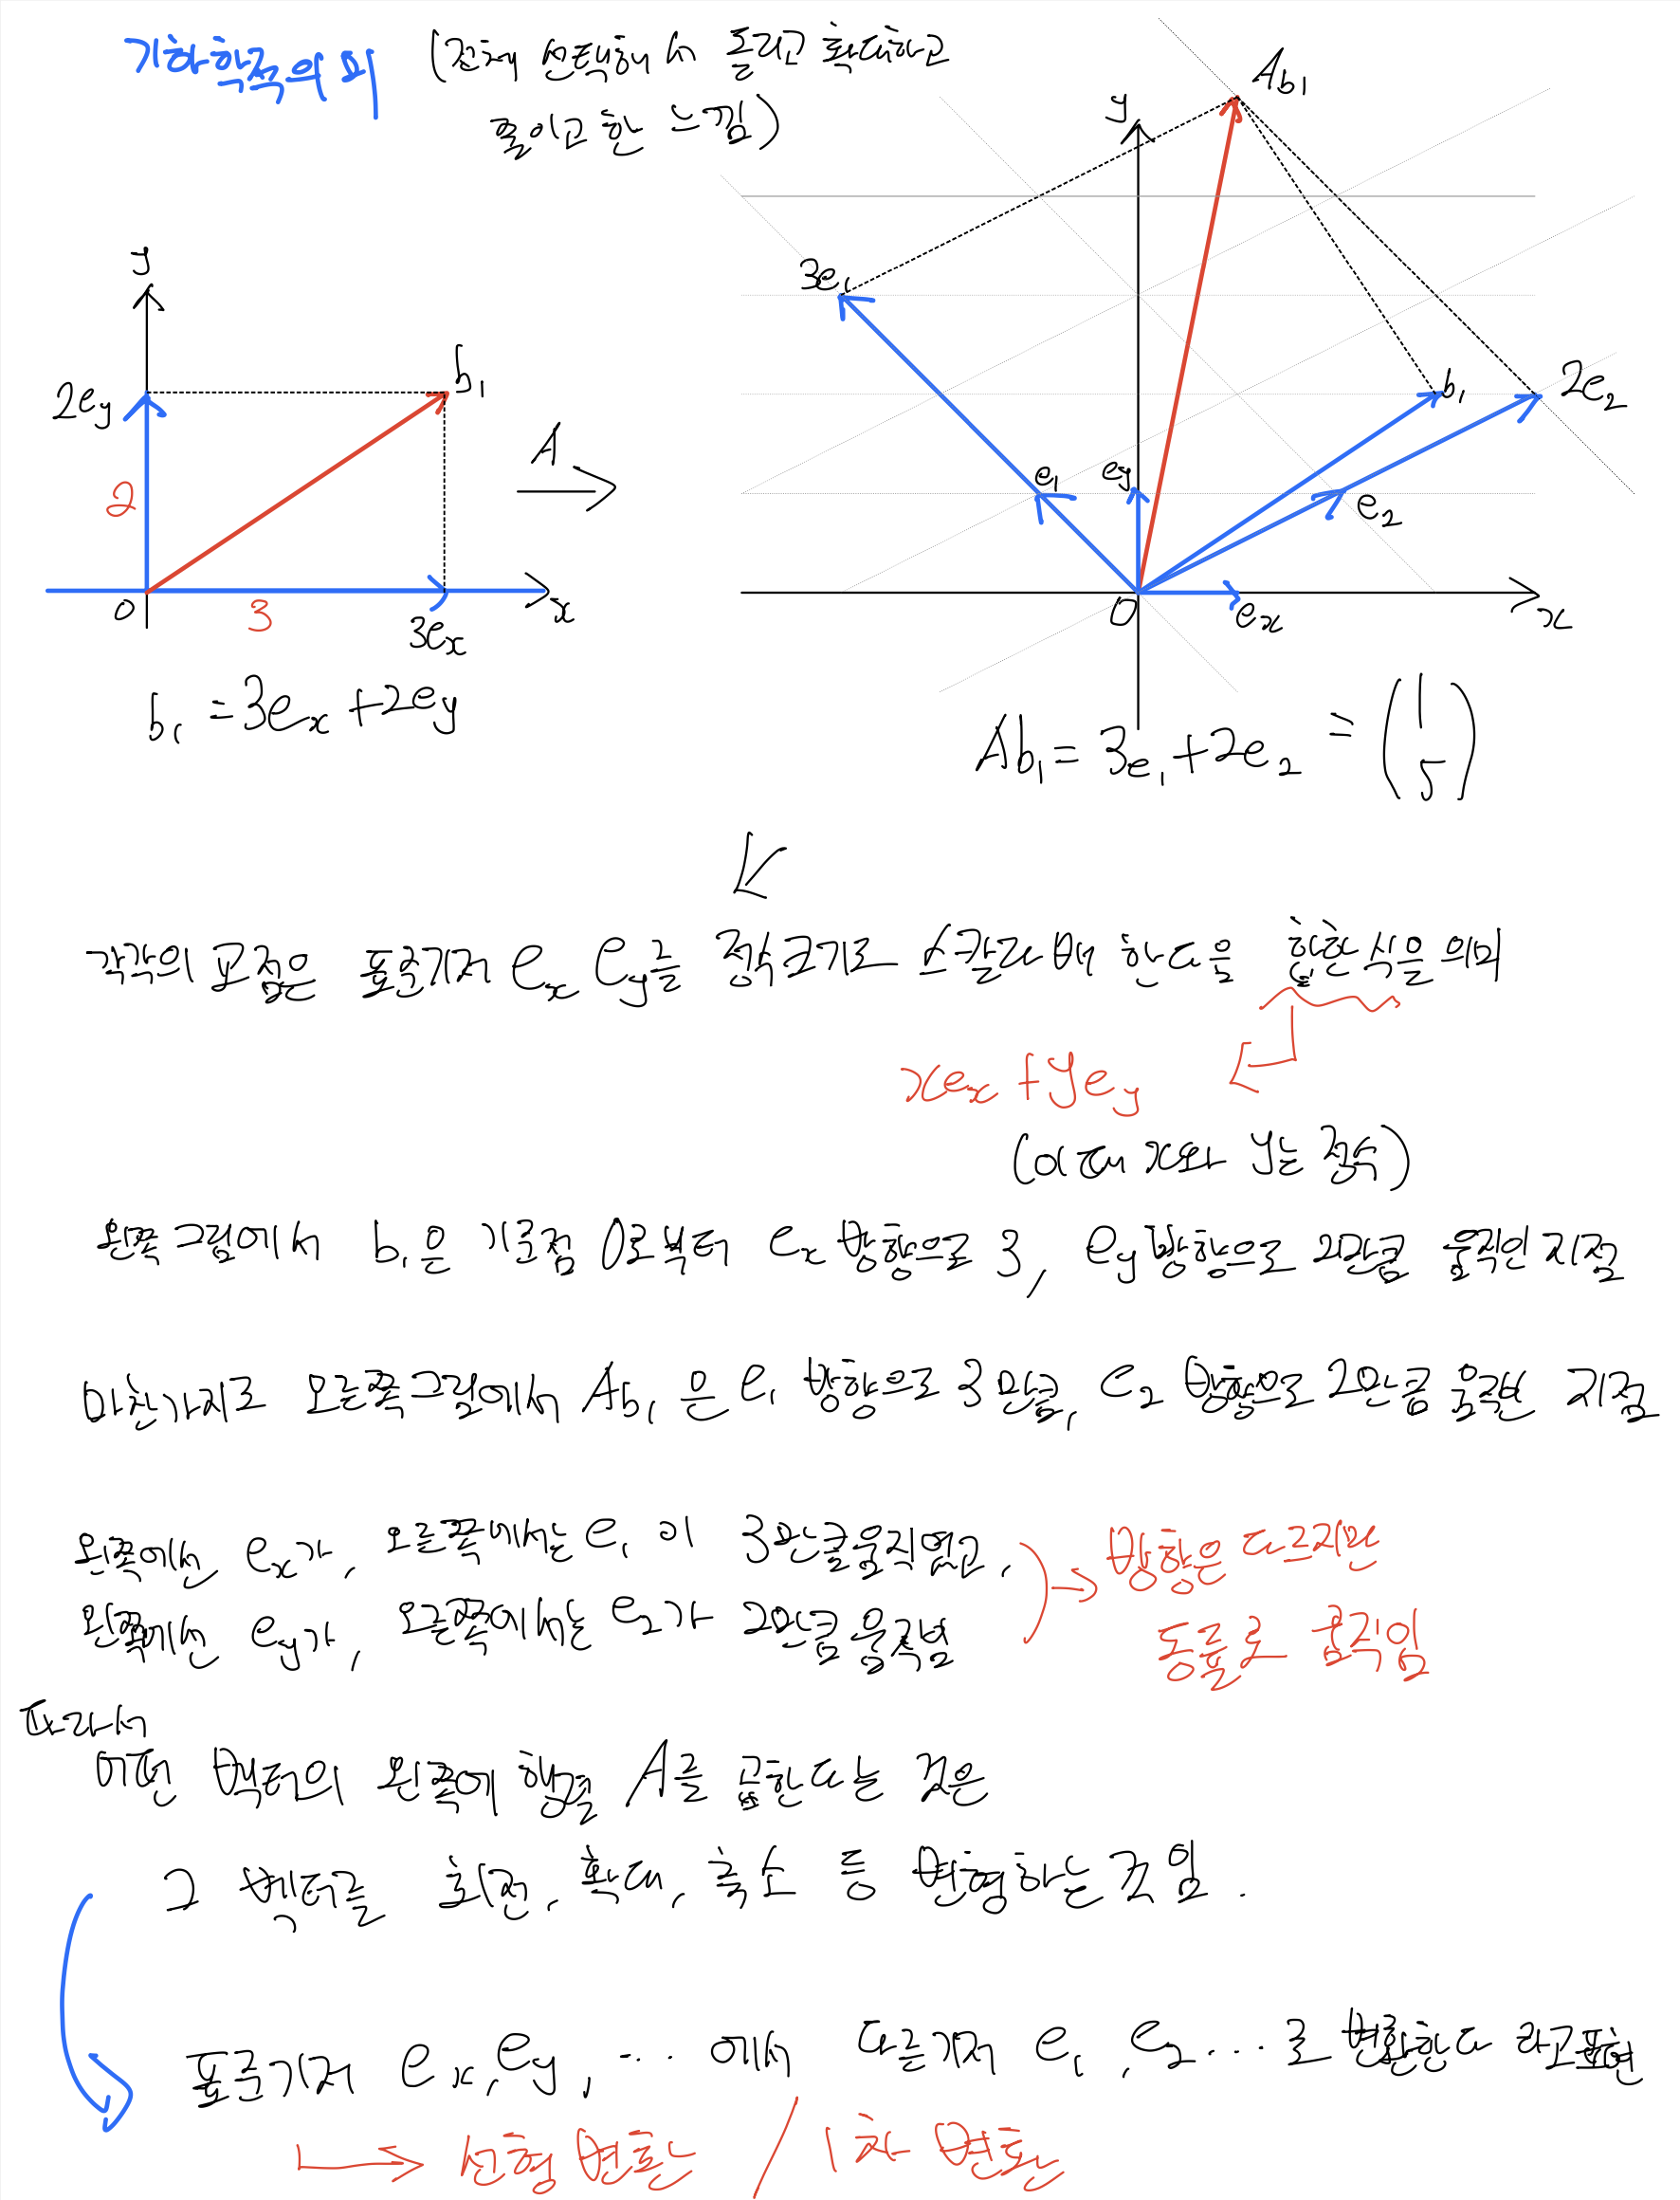 기하학적의미 (전체 선택해서 돌리고 확대하고
줄이고 한 느낌)
y
2e_y
b_1
2
0
3
3e_x
x
A
y
Ab_1
3e_1
e_1
e_y
b_1
2e_2
e_2
0
e_x
x
b_1 = 3e_x + 2e_y
Ab_1 = 3e_1 + 2e_2 = (1 5)
각각의 교점은 표준기저 e_x e_y를 정수크기로 스칼라배 한다음 합한 식을 의미
xe_x + ye_y
(이때 x와 y는 정수)
왼쪽 그림에서 b_1은 기준점 0로부터 e_x 방향으로 3, e_y방향으로 2만큼 움직인 지점
마찬가지로 오른쪽그림에서 Ab_1은 e_1 방향으로 3만큼, e_2 방향으로 2만큼 움직인 지점
왼쪽에선 e_x가, 오른쪽에서는 e_1이 3만큼움직였고,
왼쪽에선 e_y가, 오른쪽에서는 e_2가 2만큼움직임
방향은 다르지만
동률로 움직임
따라서
어떤 벡터의 왼쪽에 행렬 A를 곱한다는 것은
그 벡터를 회전, 확대, 축소 등 변형하는것임.
표준기저 e_x, e_y, ... 에서 다른기저 e_1, e_2...로 변환한다 라고표현
선형변환 / 1차 변환